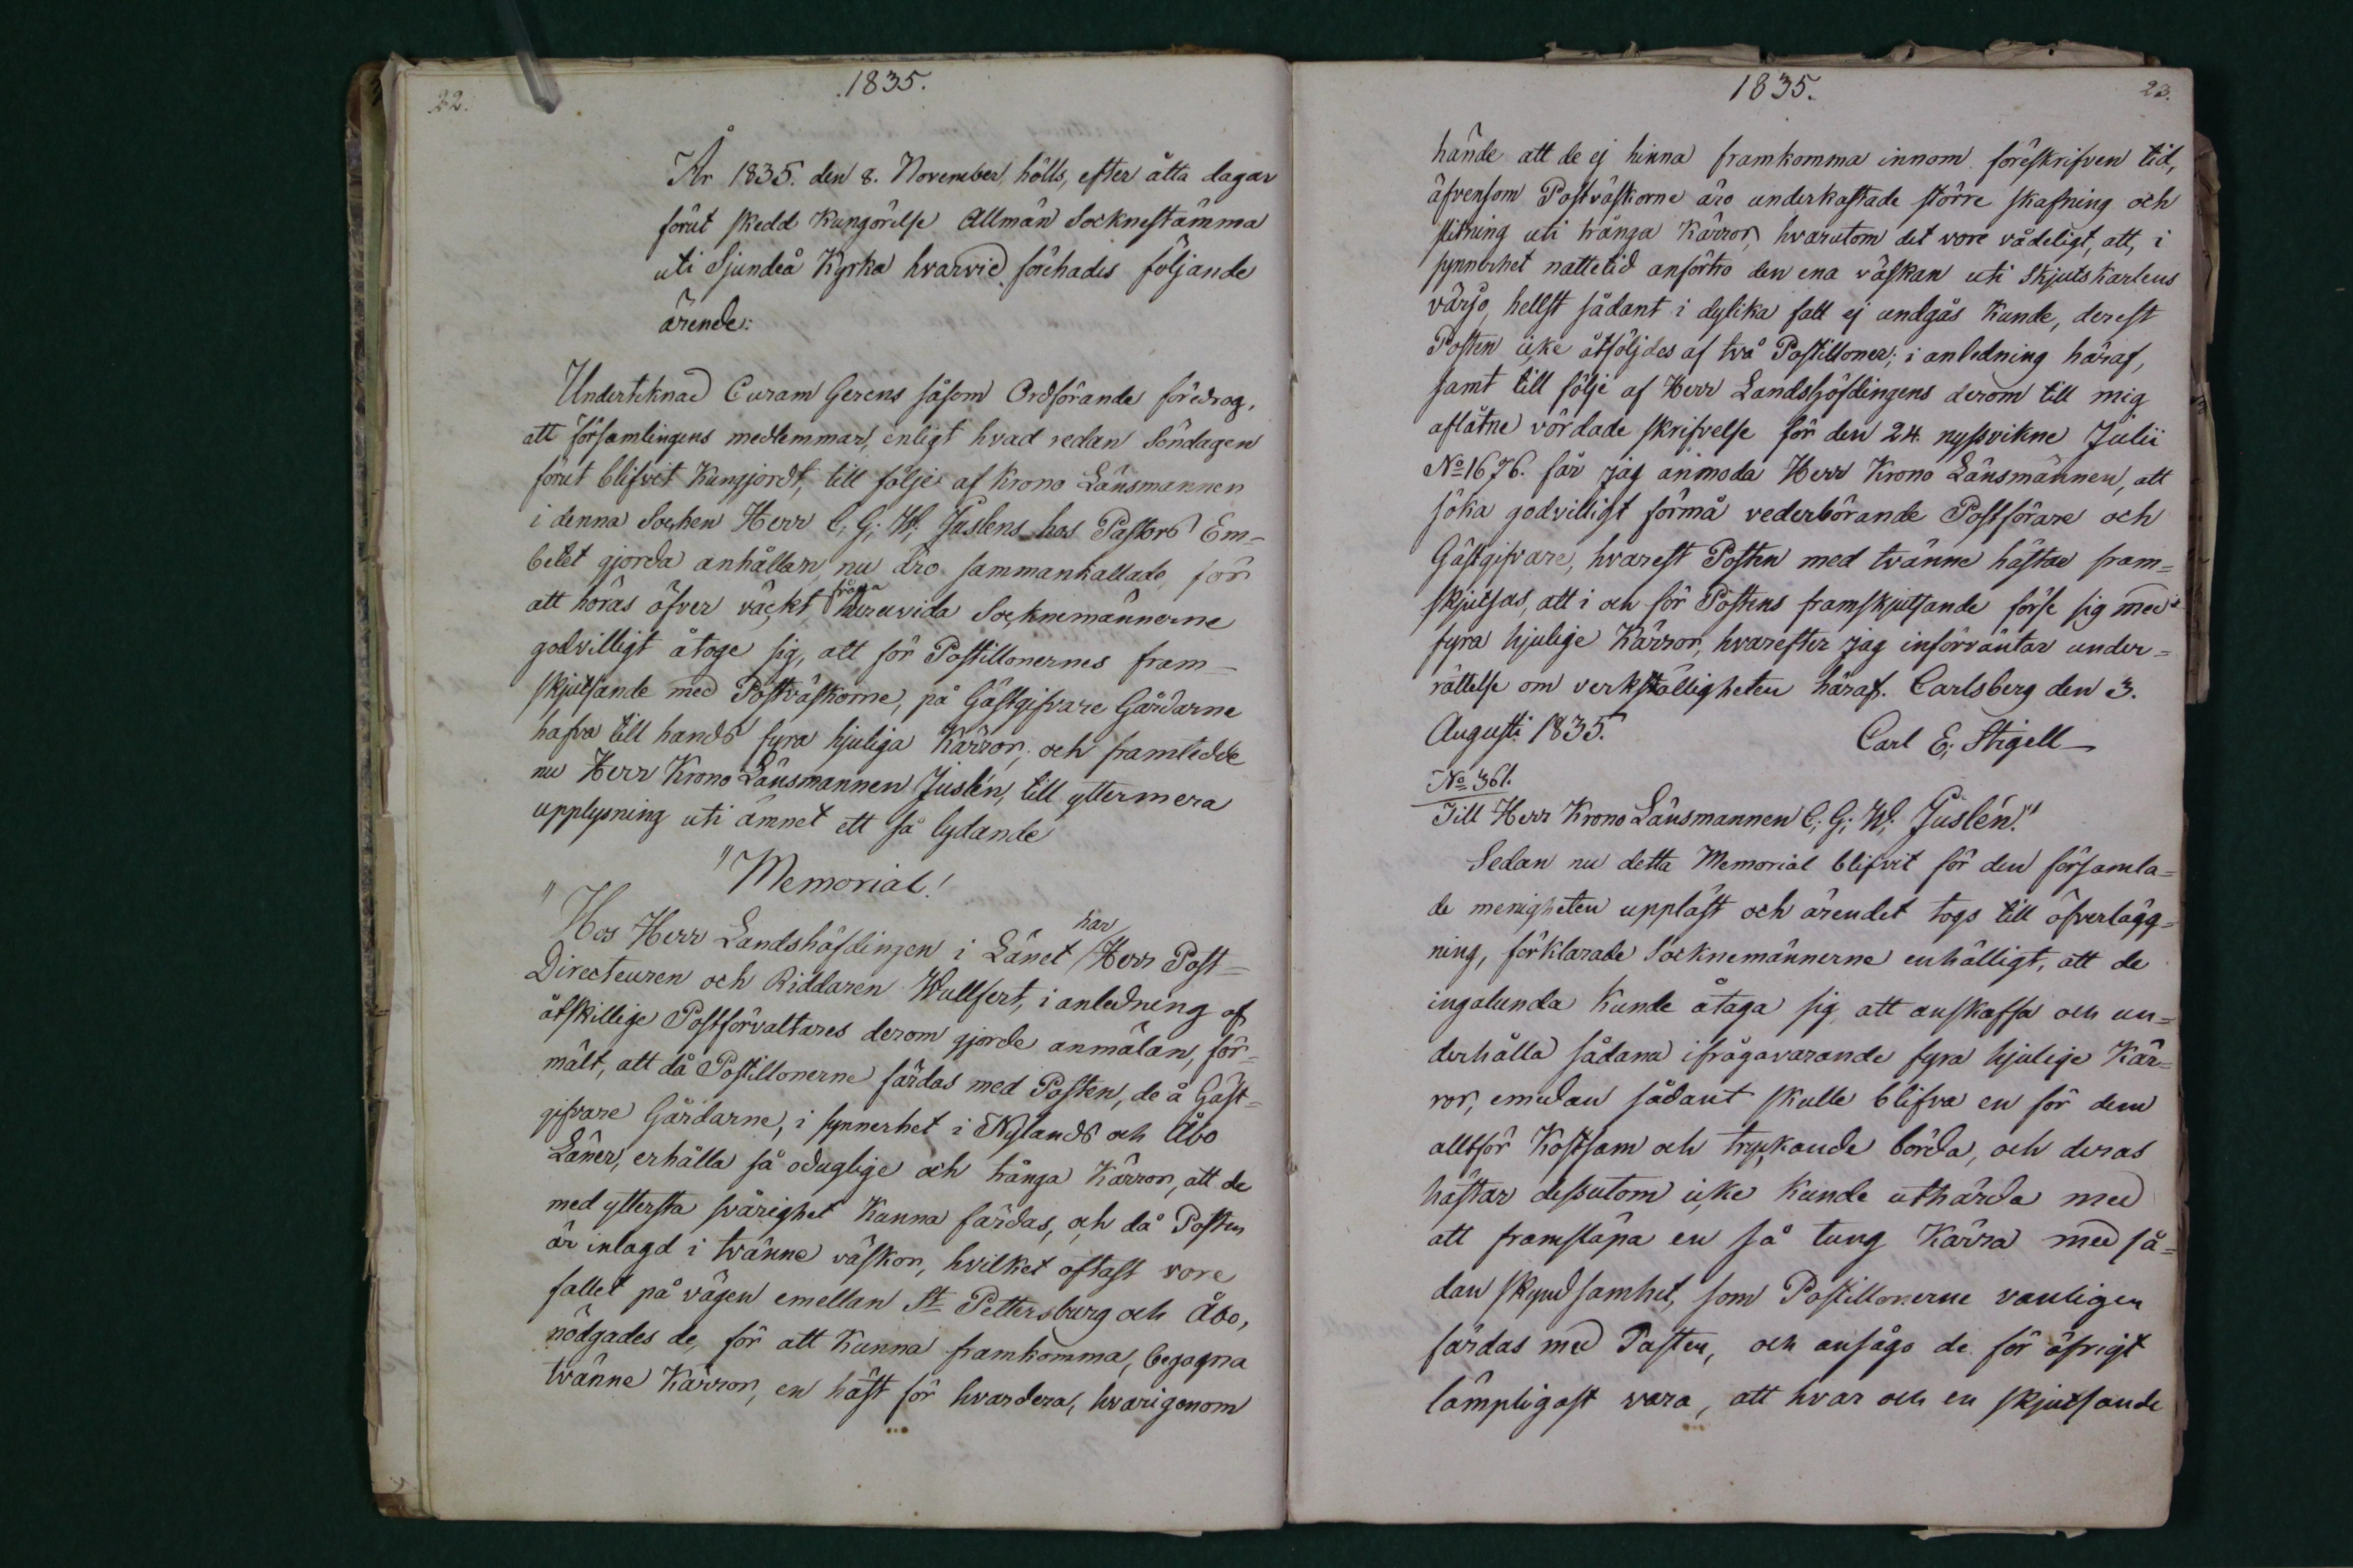 22.
1835.
År 1835. den 8. November, hölls, efter åtta dagar
förut skedd Kungörelse Allmän Socknestämma
uti Sjundeå Kyrka hvarvid förehades följande
ärende:
Undertecknad Curam Gerens såsom Ordförande föredrog,
att församlingens medlemmar, enligt hvad redan Söndagen
förut blifvit Kungjordt, till följe af Krono Länsmannen
i denna Socken Herr C; G; W; Juslens hos Pastors Em=
betet gjorda anhållan, nu äro sammankallade, för
att höras öfver väckt fråga huruvida Socknemännerne
godvilligt åtoge sig, att för Postillonernes fram=
skjutsande med Postväskorne, på Gästgifvare Gårdarne
hafva till hands fyra hjuliga Kärror; och framledde
nu Herr Krono Länsmannen Juslén, till yttermera
upplysning uti ämnet ett så lydande
"Memorial!
"Hos Herr Landshöfdingen i Länet har Herr Post=
Directeuren och Riddaren Wulffert, i anledning af
åtskillige Postförvaltares derom gjorde anmälan, för=
mält, att då Postillonerne färdas med Posten, de å Gäst=
gifvare Gårdarne, i synnerhet i Nylands och Åbo
Läner, erhålla så oduglige och trånga Kärror, att de
med yttersta svårighet Kunna färdas, och då Posten
är inlagd i tvänne väskor, hvilket oftast vore
fallet på vägen emellan St Pettersburg och Åbo,
nödgades de, för att Kunna framkomma, begagna
tvänne Kärror, en häst för hvardera, hvarigenom
1835.
23.
hände att de ej hinna framkomma innom föreskrifven tid,
äfvensom Postväskorne äro underkastade större skafning och
slitning uti trånga Kärror, hvarutom det vore vådeligt, att, i
synnerhet nattetid anförtro den ena väskan uti Skjutskarlens
värjo, hellst sådant i dylika fall ej undgås Kunde, derest
Posten icke åtföljdes af två Postilloner; i anledning häraf,
samt till följe af Herr Landshöfdingens derom till mig
aflåtne vördade skrifvelse för den 24. nyssvikne Julii
No 1676. får jag anmoda Herr Krono Länsmannen, att
söka godvilligt förmå vederbörande Postförare och
Gästgifvare, hvarest Posten med tvänne hästar fram=
skjutsas, att i och för Postens framskjutsande förse sig med
fyra hjulige Kärror, hvarefter jag införväntar under=
rättelse om verkställigheten häraf. Carlsberg den 3.
Augusti 1835.
Carl E; Stigell
No 361.
Till Herr Krono Länsmannen C; G; W; Juslén."
Sedan nu detta Memorial blifvit för den församla=
de menigheten uppläst och ärendet togs till öfverlägg=
ning, förklarade Socknemännerne enhälligt, att de
ingalunda Kunde åtaga sig att anskaffa och un=
derhålla sådana ifrågavarande fyra hjulige Kär=
ror, emedan sådant skulle blifva en för dem
alltför Kostsam och tryckande börda, och deras
hästar dessutom icke Kunde uthärda med
att framsläpa en så tung Kärra med så=
dan skyndsamhet, som Postillonerne vanligen
färdas med Posten, och ansågo de för öfrigt
lämpligast vara, att hvar och en skjutsande